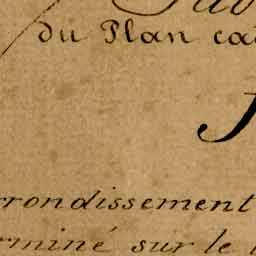 du Plan
rrondissement
rminé sur le